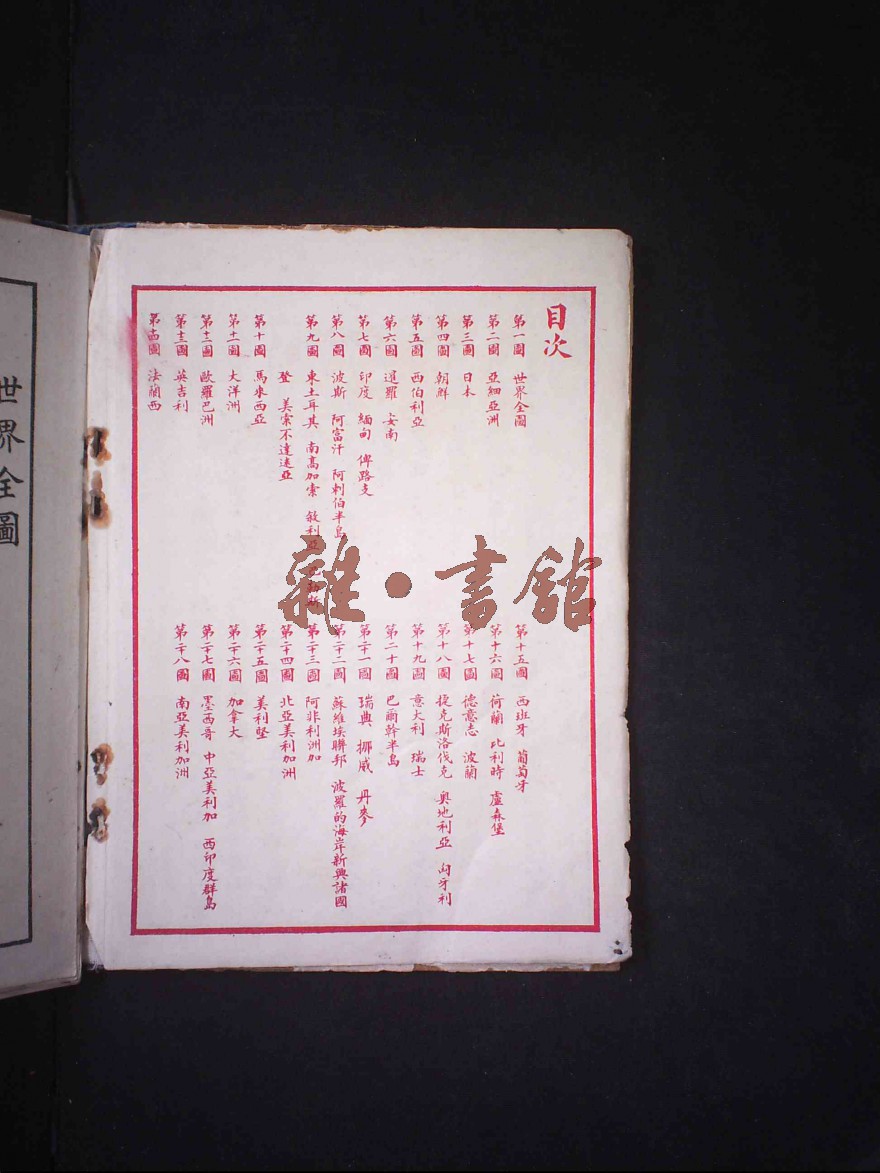 目次
第一圖 世界全圖
第二圖 亞細亞洲
第三圖 日本
第四圖 朝鮮
第五圖 西伯利亞
第六圖 暹羅 安南
第七圖 印度 緬甸 俾路支
第八圖 波斯 阿富汗 阿剌伯半島
第九圖 東土耳其 南高加索 敘利亞
登 美索不達迷亞
第十圖 馬來西亞
第十一圖 大洋洲
第十二圖 歐羅巴洲
第十三圖 英吉利
第十四圖 法蘭西
第十五圖 西班牙 葡萄牙
第十六圖 荷蘭 比利時 盧森堡
第十七圖 德意志 波蘭
第十八圖 捷克斯洛伐克 奧地利亞 匈牙利
第十九圖 意大利 瑞士
第二十圖 巴爾幹半島
第二十一圖 瑞典 挪威 丹麥
第二十二圖 蘇維埃聯邦 波羅的海岸新興諸國
第二十三圖 阿非利洲加
第二十四圖 北亞美利加洲
第二十五圖 美利堅
第二十六圖 加拿大
第二十七圖 墨西哥 中亞美利加 西印度群島
第二十八圖 南亞美利加洲
世界全圖
雜·書館